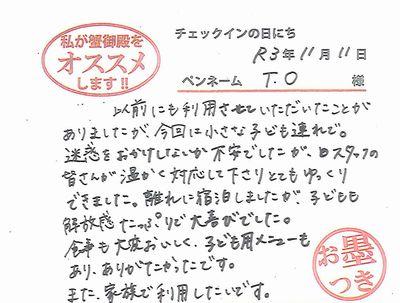 私が蟹御殿を
オススメ
します!!
チェックインの日にち
R3年11月11日
ペンネーム T.O 様
以前にも利用させていただいたことが
ありましたが、今回は小さな子ども連れで。
迷惑をおかけしないか不安でしたが、スタッフの
皆さんが温かく対応して下さりとてもゆっくり
できました。離れに宿泊しましたが、子どもも
解放感たっぷりで大喜びでした。
食事も大変おいしく、子ども用メニューも
あり、ありがたかったです。
また、家族で利用したいです。
お墨
つき